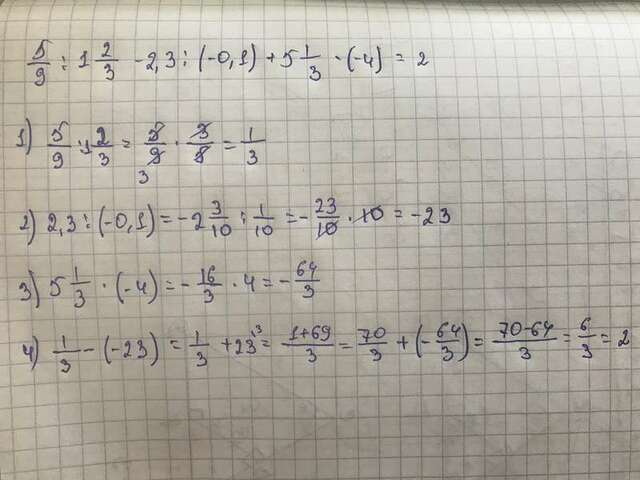 5/9 : 1 2/3 - 2,3 : (-0,1) + 5 1/3 · (-4) = 2
1) 5/9 : 1 2/3 = 5/9 · 3/5 = 1/3
3
2) 2,3 : (-0,1) = -2 3/10 : 1/10 = -23/10 · 10 = -23
3) 5 1/3 · (-4) = -16/3 · 4 = -64/3
4) 1/3 - (-23) = 1/3 + 23 ,3 = 1+69/3 = 70/3 + (-64/3) = 70-64/3 = 6/3 = 2